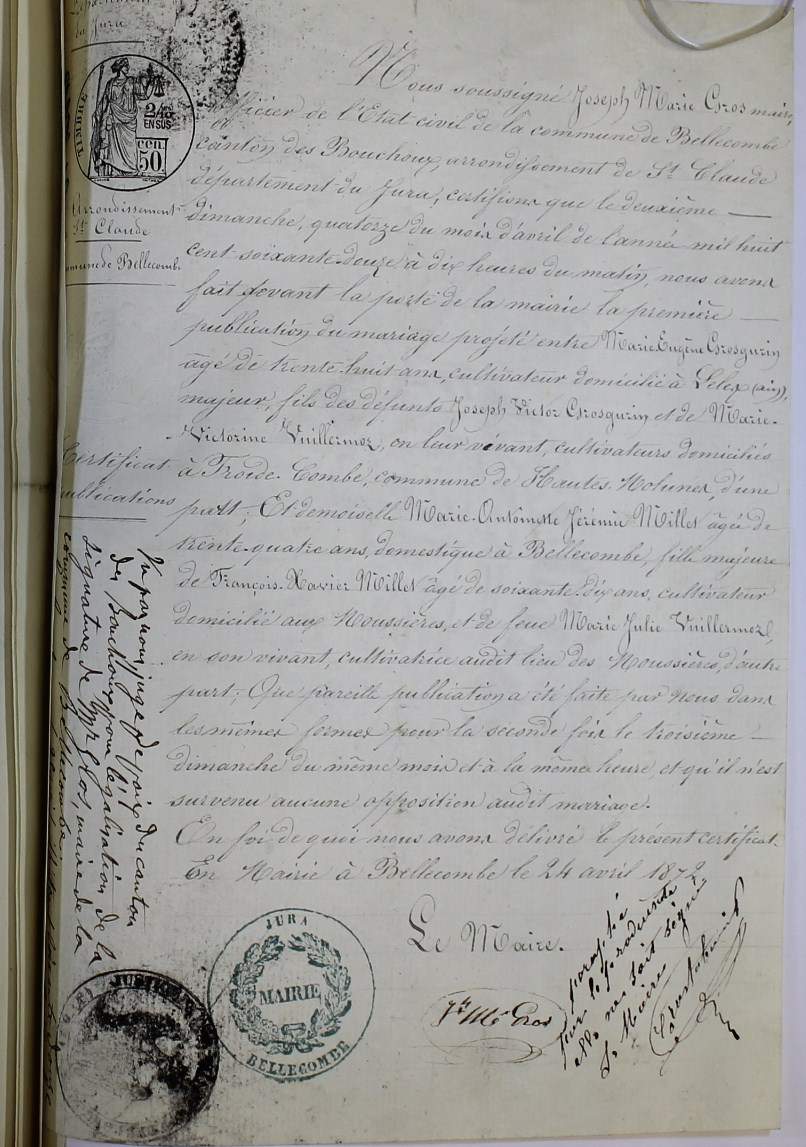 du Jura
TIMBRE
2/10
EN SUS
50 CEN
Arrondissement
St Claude
Commune de Bellecombe
Certificat
publications
Nous soussigné Joseph Marie Gros maire,
officier de l'Etat civil de la commune de Bellecombe
canton des Bouchoux, arrondissement de St Claude
département du Jura, certifions que le deuxième —
dimanche, quatorze du mois d'avril de l'année mil huit
cent soixante-douze à dix heures du matin, nous avons
fait devant la porte de la mairie la première —
publication du mariage projeté entre Marie Eugène Grosgurin
âgé de trente-huit ans, cultivateur domicilié à Lelex (ain),
majeur, fils des défunts Joseph Victor Grosgurin et de Marie-
Victorine Vuillermoz, en leur vivant, cultivateurs domiciliés
à Froide-Combe, commune de Hautes Molunes, d'une
part; Et demoiselle Marie-Antoinette Jérémie Millet âgée de
trente-quatre ans, domestique à Bellecombe, fille majeure
de François-Xavier Millet âgé de soixante-dix ans, cultivateur
domicilié aux Moussières, et de feue Marie Julie Vuillermoz,
en son vivant, cultivatrice audit lieu des Moussières, d'autre
part; Que pareille publication a été faite par nous dans
les mêmes formes pour la seconde fois le troisième —
dimanche du même mois et à la même heure, et qu'il n'est
survenu aucune opposition audit mariage.
En foi de quoi nous avons délivré le présent certificat.
En Mairie à Bellecombe le 24 avril 1872.
Le Maire.
Jh Mie Gros
paraphé
par le
elle ne sait signé
Le Maire
Vu par nous, juge de paix du canton
des Bouchoux pour légalisation de la
signature de Mr Gros, maire de la
commune de Bellecombe
JURA
MAIRIE
BELLECOMBE